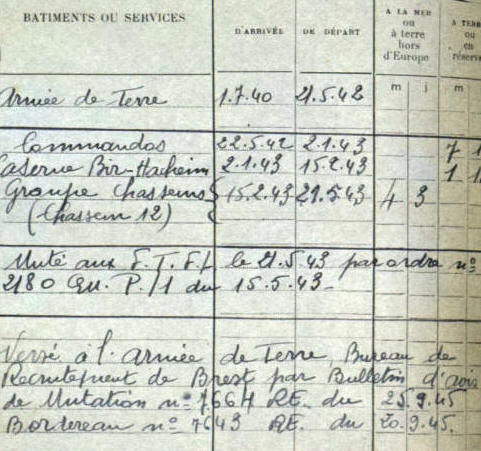 BATIMENTS OU SERVICES
D'ARRIVÉE
DE DÉPART
A LA MER
ou
à terre
hors
d'Europe
A TERRE
ou
en
réserve
m j m
Armée de Terre 1.7.40 21.5.42
Commandos 22.5.42 2.1.43 7 1
Caserne Bir-Hacheim 2.1.43 15.2.43 1 1
Groupe Chasseurs 15.2.43 21.5.43 4 3
(Chasseur 12)
Muté aux F.T.F.L le 21.5.43 par ordre nº
2180 QU. P./1 du 15.5.43-
Versé à l'armée de Terre, Bureau de
Recrutement de Brest par Bulletin d'avis
de Mutation nº 7664 RE. du 25.9.45
Bordereau nº 7643 RE. du 20.9.45.